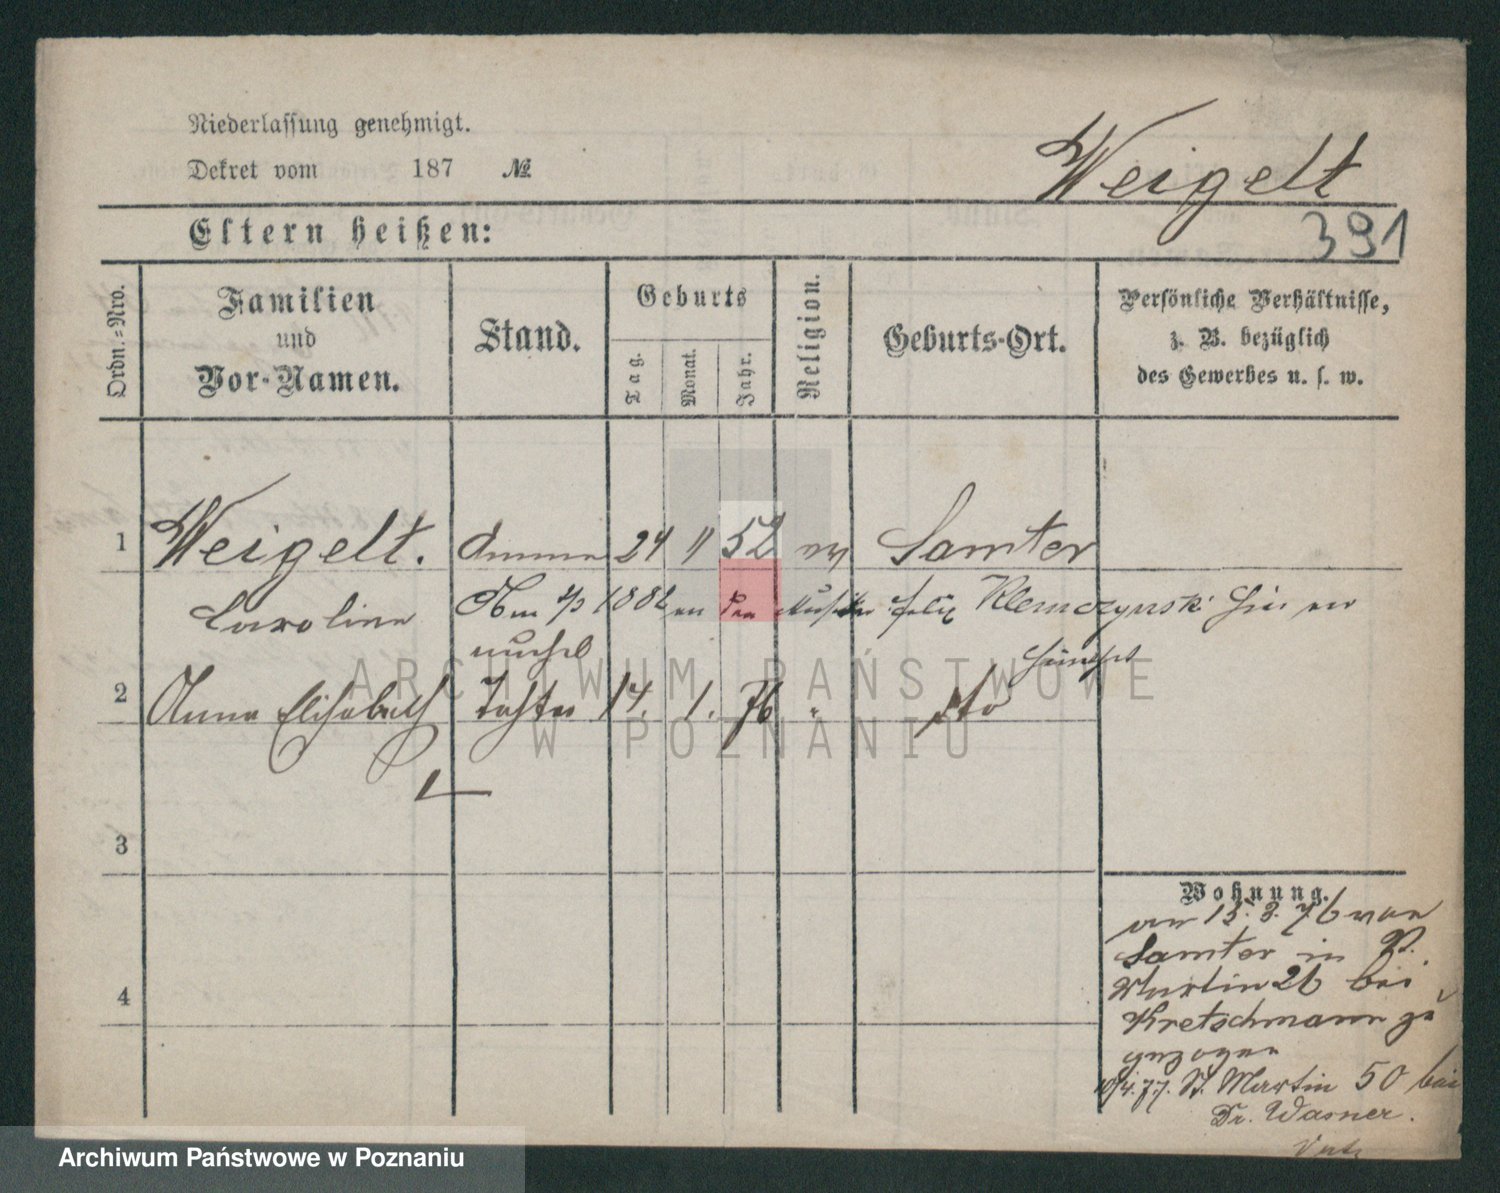 Niederlassung genehmigt.
Dekret vom 187 №
Weigelt
391
Eltern heißen:
Ordn.-Nro.
Familien
und
Vor-Namen.
Stand.
Geburts
Tag.
Monat.
Jahr.
Religion.
Geburts-Ort.
Persönliche Verhältnisse,
z. B. bezüglich
des Gewerbes u. s. w.
1 Weigelt. Amme 24 11 52 Samter
Caroline Am 1882 Felix Klemczynski
2 Anna Elisabeth Tochter 14. 1. 76 " dto
3
4
Wohnung.
am 13. 3. 76 von
Samter in St.
Martin 26 bei
Kretschmann zu
gezogen
10/4. 77. St. Martin 50 bei
Dr. Wasner.
ARCHIWUM PAŃSTWOWE
W POZNANIU
Archiwum Państwowe w Poznaniu